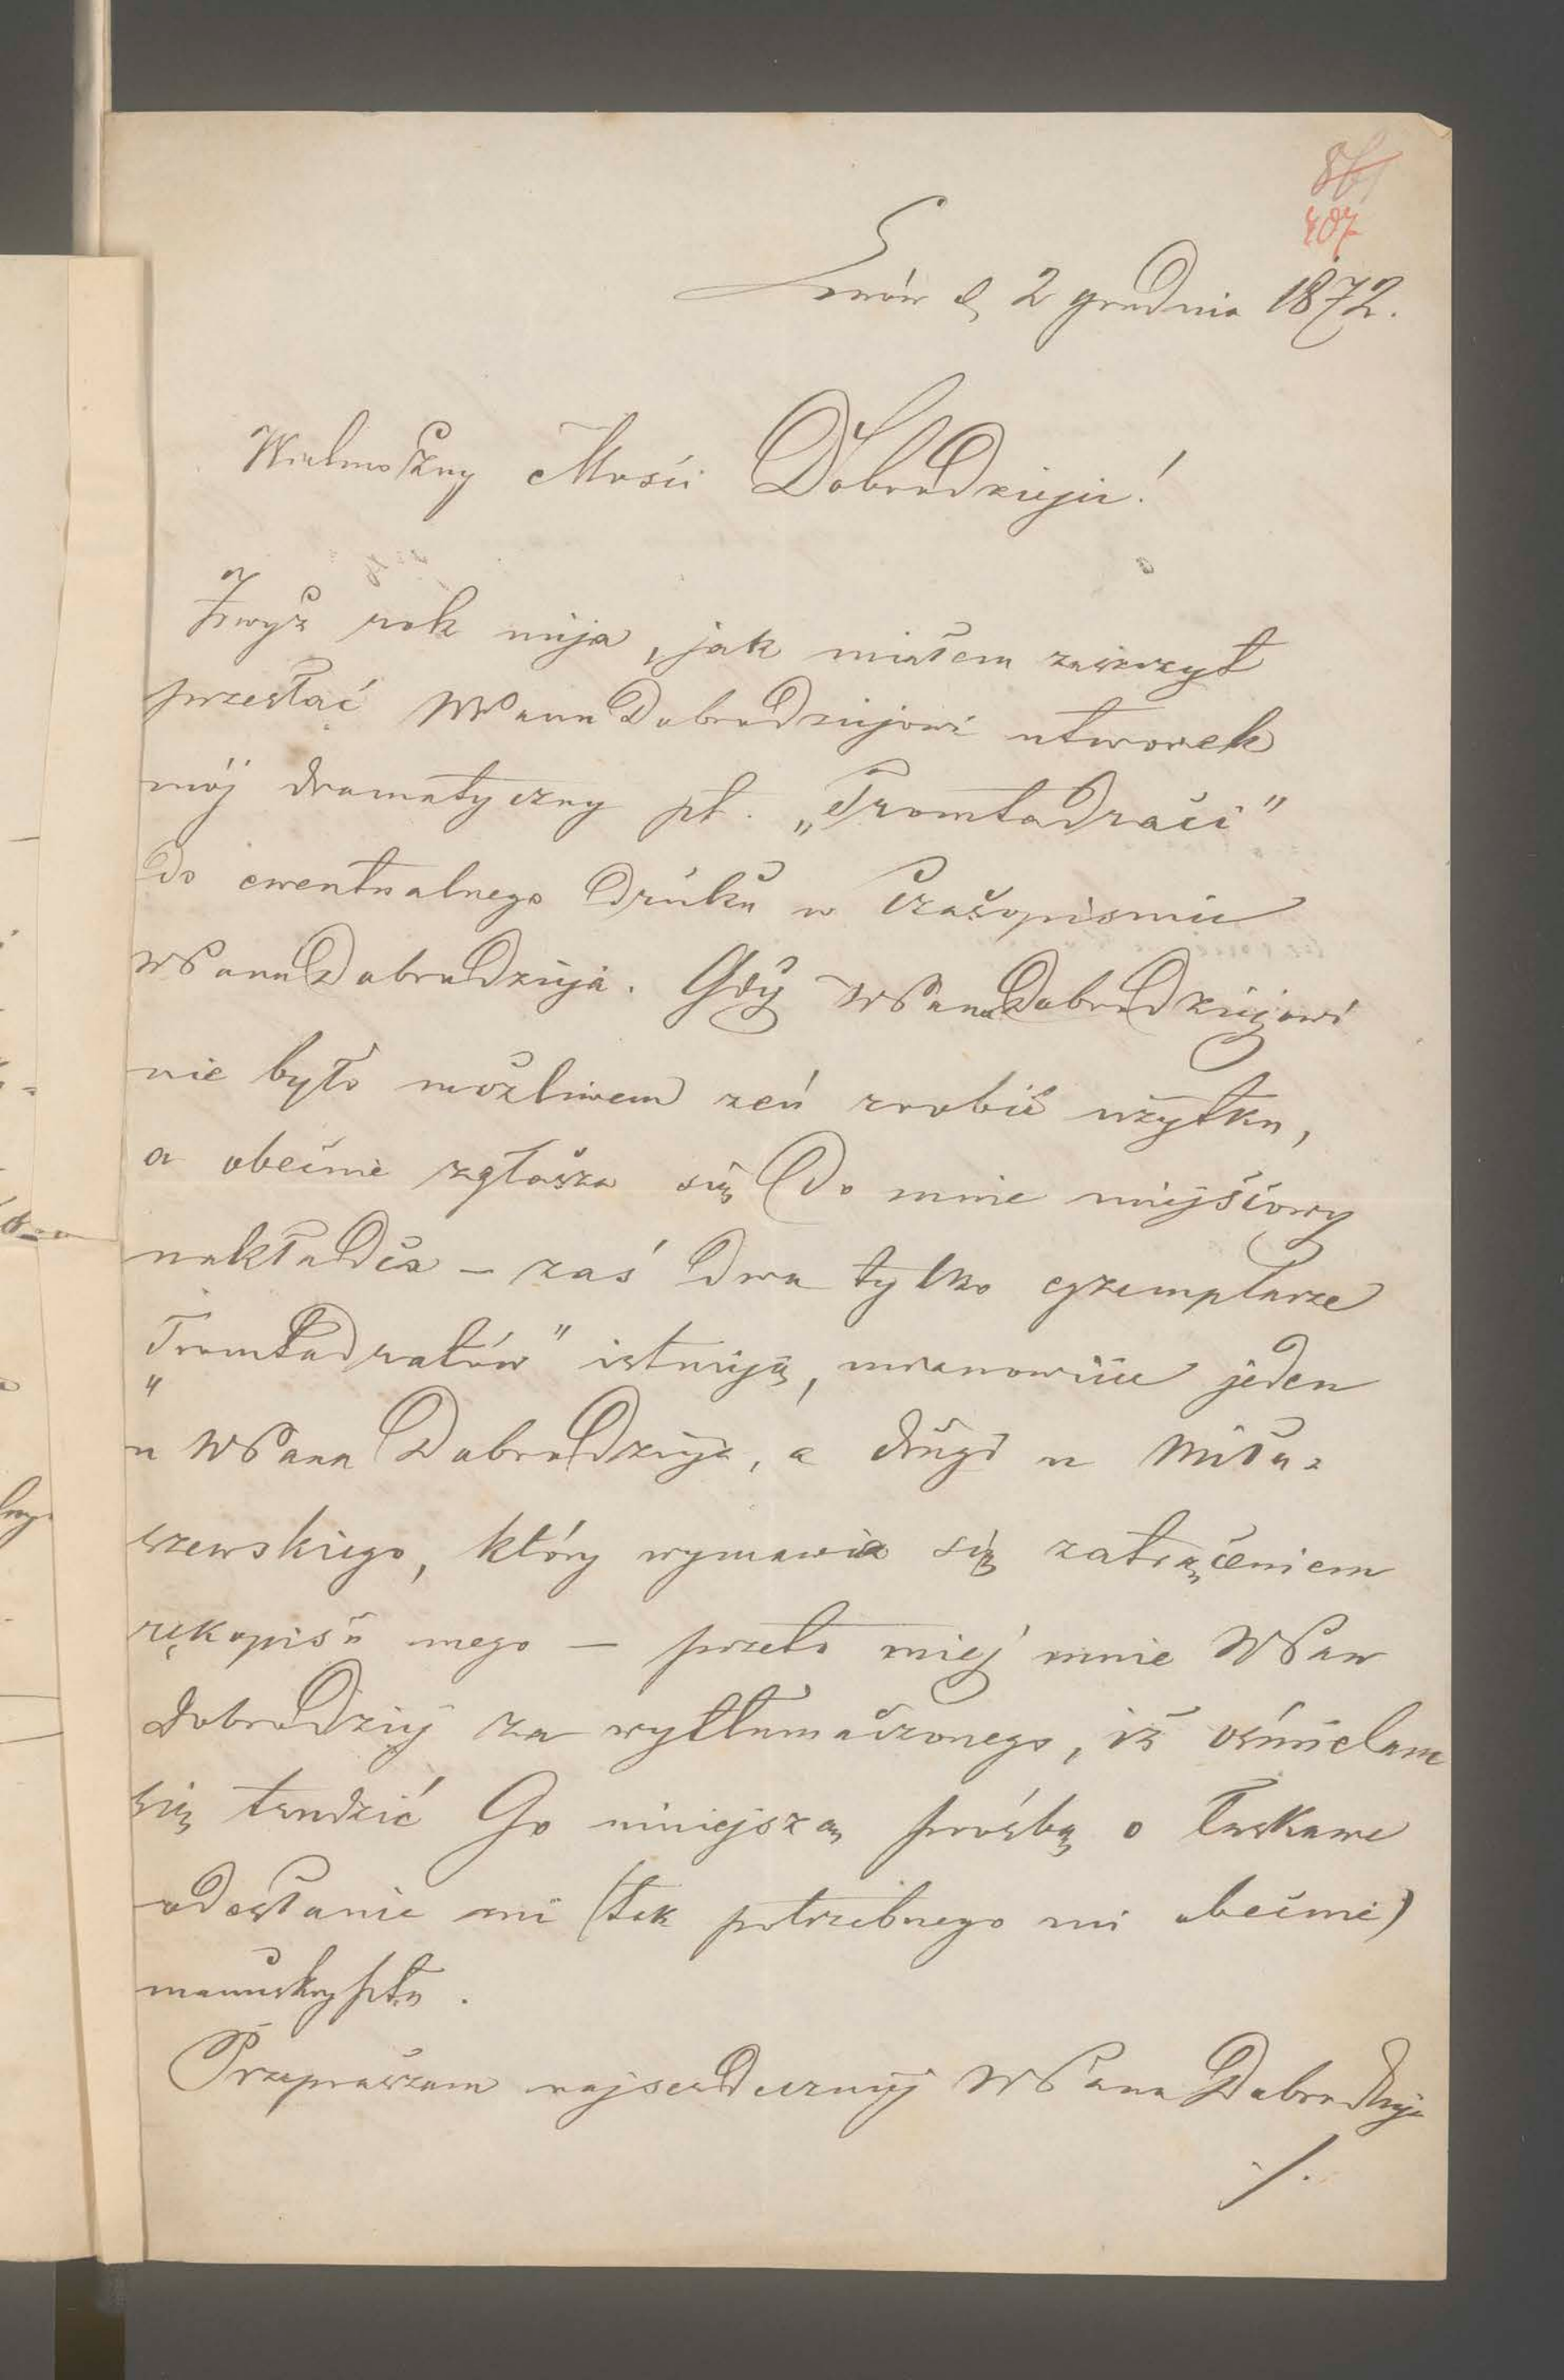 407
Lwów d. 2 grudnia 1872.
Wielmożny Mości Dobrodzieju!
Zwyż rok mija, jak miałem zaszczyt
przesłać WPanu Dobrodziejowi utworek
mój dramatyczny pt. „Tromtadraci"
do ewentualnego druku w Czasopismie
WPana Dobrodzieja. Gdy WPanu Dobrodziejowi
nie było możliwem zeń zrobić użytku,
a obecnie zgłasza się do mnie miejscowy
nakładca – zaś dwa tylko egzemplarze
„Tromtadratów" istnieją, mianowicie jeden
u WPana Dobrodzieja, a drugi u Miła-
szewskiego, który wymawia się zatraceniem
rękopisu mego – przeto miej mnie WPan
Dobrodziej za wytłumaczonego, iż ośmielam
się trudzić Go niniejszą prośbą o łaskawe
odesłanie mi (tak potrzebnego mi obecnie)
manuskryptu.
Przepraszam najserdeczniej WPana Dobrodzieja
./.